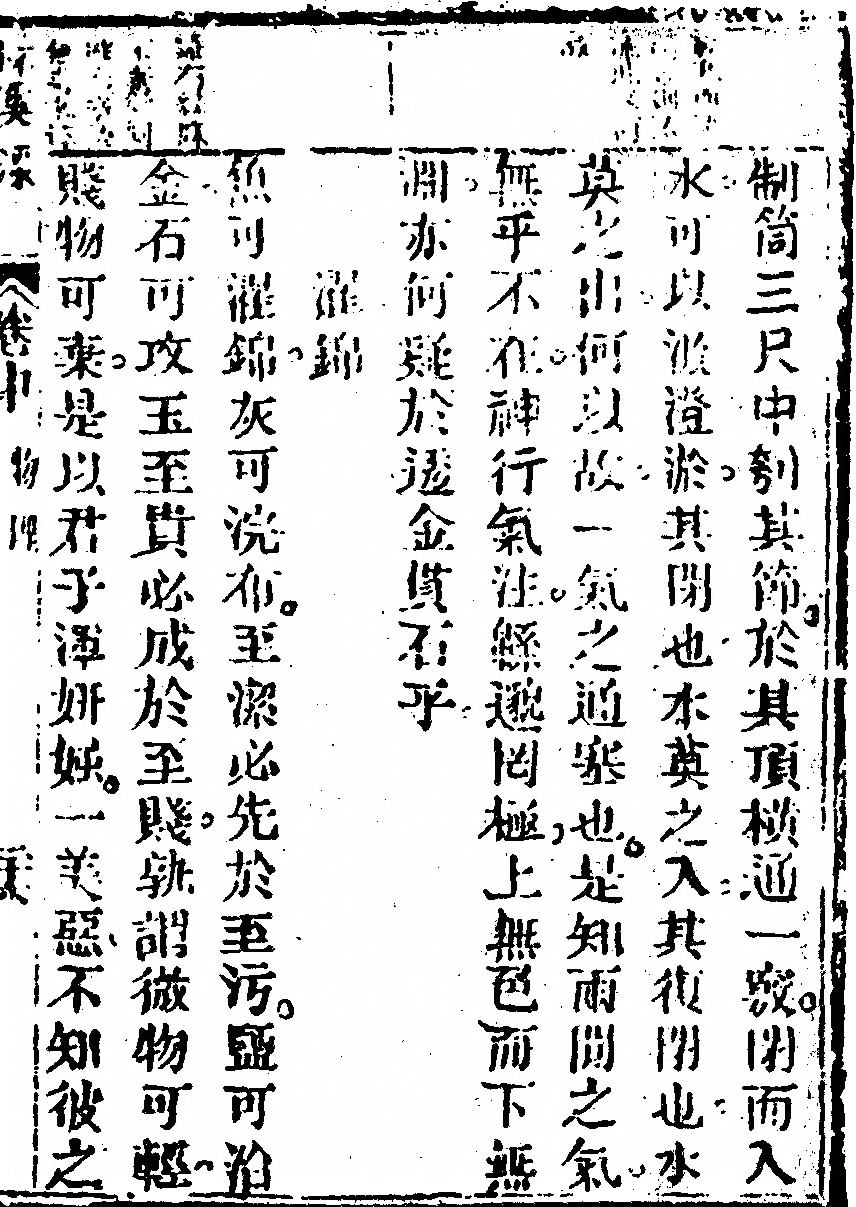 制筒三尺中刳其節於其頂橫通一竅閉而入
水可以滌澄淤其閉也水莫之入其復閉也水
莫之出何以故一氣之通塞也是知兩間之氣
無乎不在神行氣注緜邈罔極上無色而下無
淵亦何疑於透金貫石乎
濯錦
魚可濯錦灰可浣布至潔必先於至污鹽可治
金石可攻玉至貴必成於至賤孰謂微物可輕
賤物可棄是以君子渾妍媸一美惡不知彼之
卷中 物理